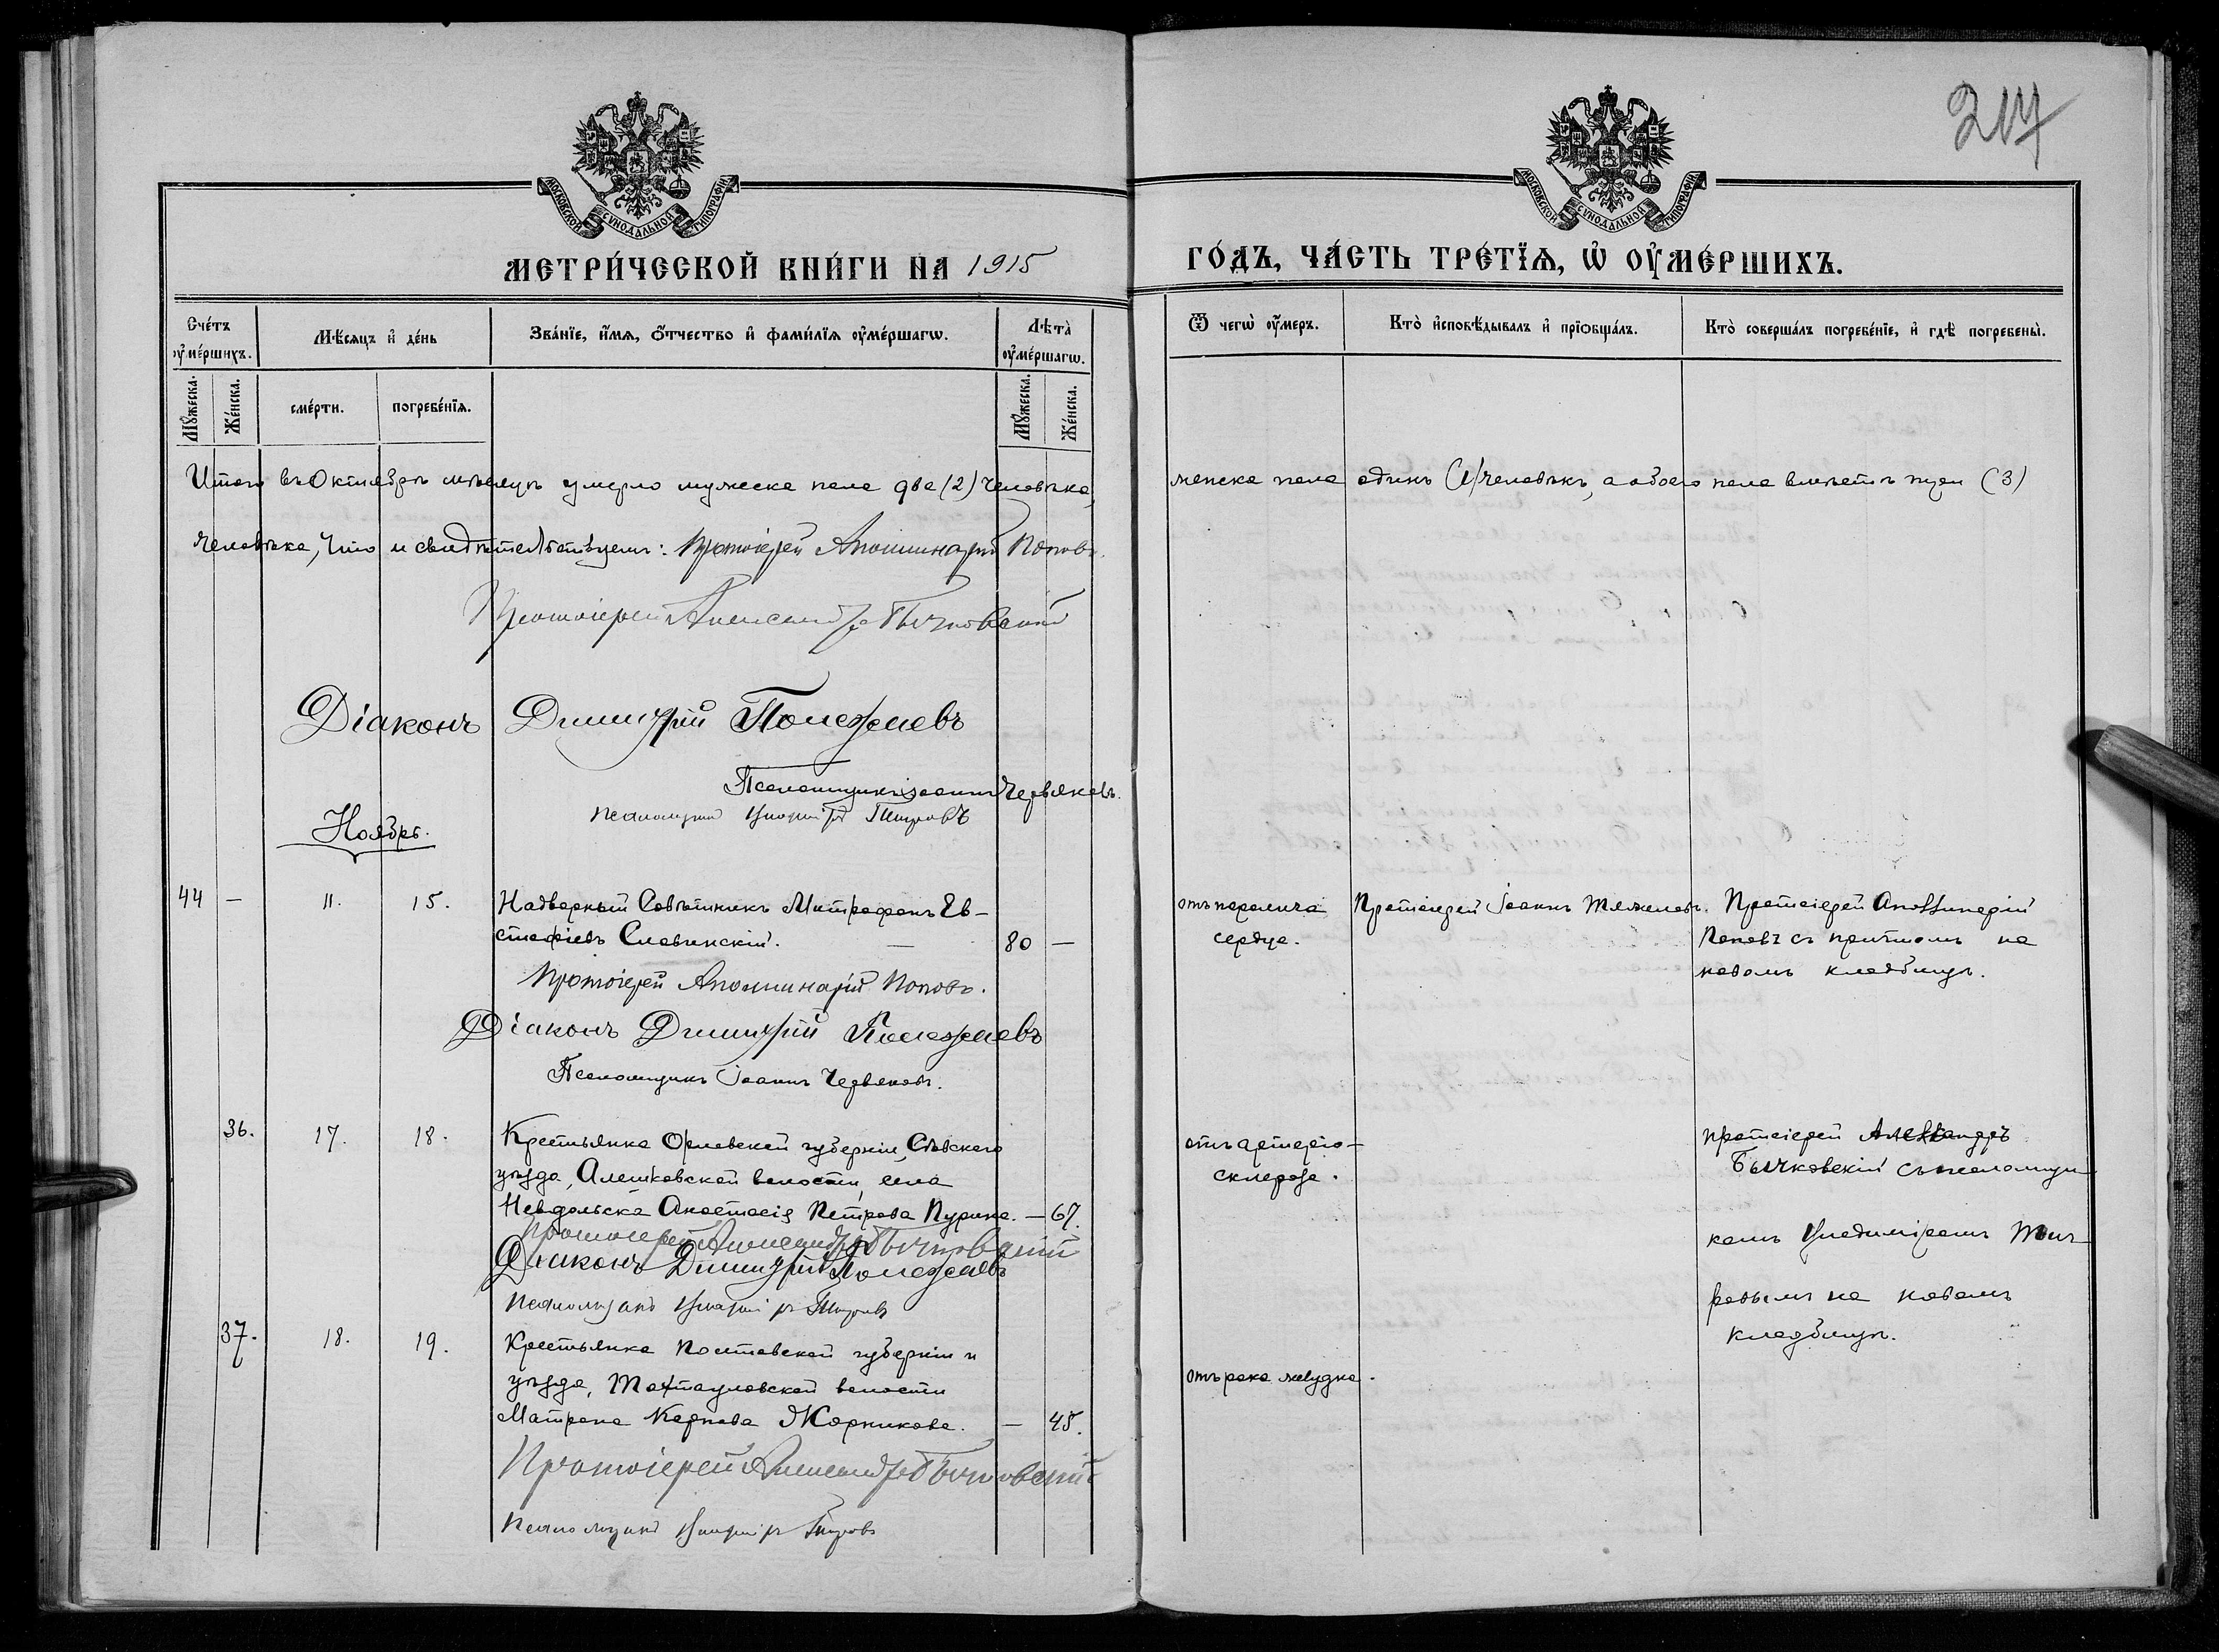 217
МОСКОВСКОЙ СѴНОДАЛЬНОЙ ТИПОГРАФІИ
МОСКОВСКОЙ СѴНОДАЛЬНОЙ ТИПОГРАФІИ
МЕТРИ́ЧЕСКОЙ КНИ́ГИ НА 1915 ГО́ДЪ, ЧА́СТЬ ТРЕ́ТЇѦ, Ѡ҆ ОУ҆МЕ́РШИХЪ.
Сче́тъ оу҆ме́ршихъ.
Мѣ́сяцъ и҆ де́нь
Зва́нїе, и҆́мѧ, ѻ҆́тчество и҆ фами́лїѧ оу҆ме́ршагѡ.
Лѣ́та оу҆ме́ршагѡ.
Ѿ чегѡ̀ оу҆́меръ.
Кто̀ и҆сповѣ́дывалъ и҆ прїѻбща́лъ.
Кто̀ соверша́лъ погребе́нїе, и҆ гдѣ̀ погребены̀.
Мꙋ́жеска.
Же́нска.
сме́рти.
погребе́нїѧ.
Мꙋ́жеска.
Же́нска.
Итого въ Октябрѣ мѣсяцѣ умерло мужеска пола два (2) человѣка, женска пола одинъ (1) человѣкъ, а обоего пола вмѣстѣ три (3)
человѣка, Что и свидѣтельствуемъ: Протоіерей Аполлинарій Поповъ.
Протоіерей Александръ Бычковскій
Діаконъ Димитрій Полежаевъ
Псаломщикъ Іоаннъ Червяковъ.
Псаломщикъ Владиміръ Тигровъ
Ноябрь.
44 — 11. 15. Надворный Совѣтникъ Митрофанъ Ев-
стафіевъ Славинскій. — 80 —
отъ паралича
сердца.
Протоіерей Іоаннъ Тяжеловъ.
Протоіерей Аполлинарій
Поповъ съ причтомъ на
новомъ кладбищѣ.
Протоіерей Аполлинарій Поповъ.
Діаконъ Димитрій Полежаевъ
Псаломщикъ Іоаннъ Червяковъ.
36. 17. 18. Крестьянка Орловской губерніи, Сѣвскаго
уѣзда, Алешковской волости, села
Невдольска Анастасія Петрова Пурина. — 67.
отъ артеріо-
склероза.
протоіерей Александръ
Бычковскій съ псаломщи-
комъ Владиміромъ Тиг-
ровымъ на новомъ
кладбищѣ.
Протоіерей Александръ Бычковскій
Діаконъ Димитрій Полежаевъ
Псаломщикъ Владиміръ Тигровъ
37. 18. 19. Крестьянка Полтавской губерніи и
уѣзда, Тахтауловской волости
Матрона Карпова Жорникова. — 45.
отъ рака желудка.
Протоіерей Александръ Бычковскій
Псаломщикъ Владиміръ Тигровъ